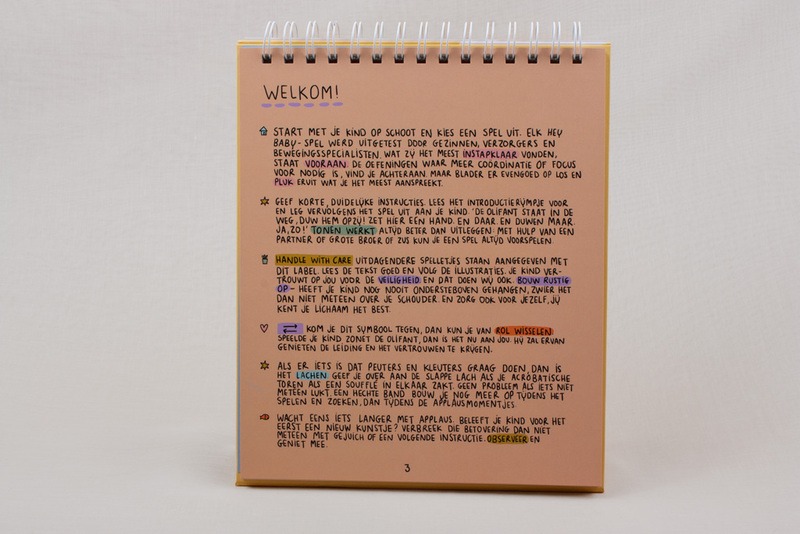 WELKOM!
START MET JE KIND OP SCHOOT EN KIES EEN SPEL UIT. ELK HEY
BABY-SPEL WERD UITGETEST DOOR GEZINNEN, VERZORGERS EN
BEWEGINGSSPECIALISTEN. WAT ZY HET MEEST INSTAPKLAAR VONDEN,
STAAT VOORAAN: DE OEFENINGEN WAAR MEER COORDINATIE OF FOCUS
VOOR NODIG IS, VIND JE ACHTERAAN. MAAR BLADER ER EVENGOED OP LOS EN
PLUK ERUIT WAT JE HET MEEST AANSPREEKT.
GEEF KORTE, DUIDELIJKE INSTRUCTIES. LEES HET INTRODUCTIERIJMPJE VOOR
EN LEG VERVOLGENS HET SPEL UIT AAN JE KIND. 'DE OLIFANT STAAT IN DE
WEG, DUW HEM OPZIJ! ZET HIER EEN HAND. EN DAAR. EN DUWEN MAAR.
JA, ZO!' TONEN WERKT ALTIJD BETER DAN UITLEGGEN: MET HULP VAN EEN
PARTNER OF GROTE BROER OF ZUS KUN JE EEN SPEL ALTIJD VOORSPELEN.
HANDLE WITH CARE UITDAGENDERE SPELLETJES STAAN AANGEGEVEN MET
DIT LABEL. LEES DE TEKST GOED EN VOLG DE ILLUSTRATIES. JE KIND VER-
TROUWT OP JOU VOOR DE VEILIGHEID: EN DAT DOEN WIJ OOK. BOUW RUSTIG
OP - HEEFT JE KIND NOG NOOIT ONDERSTEBOVEN GEHANGEN, ZWIER HET
DAN NIET METEEN OVER JE SCHOUDER. EN ZORG OOK VOOR JEZELF, JIJ
KENT JE LICHAAM HET BEST.
KOM JE DIT SYMBOOL TEGEN, DAN KUN JE VAN ROL WISSELEN:
SPEELDE JE KIND ZONET DE OLIFANT, DAN IS HET NU AAN JOU. HIJ ZAL ERVAN
GENIETEN DE LEIDING EN HET VERTROUWEN TE KRIJGEN.
ALS ER IETS IS DAT PEUTERS EN KLEUTERS GRAAG DOEN, DAN IS
HET LACHEN. GEEF JE OVER AAN DE SLAPPE LACH ALS JE ACROBATISCHE
TOREN ALS EEN SOUFFLÉ IN ELKAAR ZAKT. GEEN PROBLEEM ALS IETS NIET
METEEN LUKT. EEN HECHTE BAND BOUW JE NOG MEER OP TIJDENS HET
SPELEN EN ZOEKEN, DAN TIJDENS DE APPLAUSMOMENTJES.
WACHT EENS IETS LANGER MET APPLAUS. BELEEFT JE KIND VOOR HET
EERST EEN NIEUW KUNSTJE? VERBREEK DIE BETOVERING DAN NIET
METEEN MET GEJUICH OF EEN VOLGENDE INSTRUCTIE. OBSERVEER EN
GENIET MEE.
3